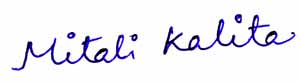 Mitali Kalita